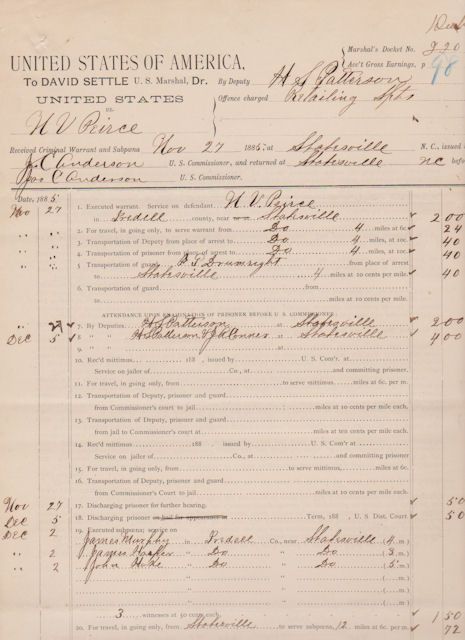 1 Deal
Marshal's Docket No. 920
UNITED STATES OF AMERICA,
Acc't Gross Earnings, p 98
To DAVID SETTLE U. S. Marshal, Dr.
By Deputy H S Patterson
UNITED STATES
Offence charged Retailing Spts
vs.
N V Peirce
Received Criminal Warrant and Subpœna Nov 27 1885; at Statesville N. C., issued
Jas C Anderson U. S. Commissioner, and returned at Statesville NC before
Jas C Anderson U. S. Commissioner.
Date, 1885
Nov 27 1. Executed warrant. Service on defendant N. V. Peirce
in Iredell county, near Statesville 2 00
" " 2. For travel, in going only, to serve warrant from Do 4 miles at 6c 24
" " 3. Transportation of Deputy from place of arrest to Do 4 miles, at 10c 40
" " 4. Transportation of prisoner from place of arrest to Do 4 miles, at 10c 40
" " 5. Transportation of guard from place of arrest
to Statesville 4 miles at 10 cents per mile. 40
6. Transportation of guard from
to miles at 10 cents per mile.
ATTENDANCE UPON EXAMINATION OF PRISONER BEFORE U. S. COMMISSIONER
" 27 7. By Deputys H S Patterson at Statesville 2 00
Dec 5 8. " " H S Patterson & at Statesville 4 00
9. " " at
10. Rec'd mittimus 188 , issued by U. S. Com'r at
Service on jailer of Co., at and committing prisoner
11. For travel, in going only, from to serve mittimus miles at 6c. per m.
12. Transportation of Deputy, prisoner and guard
from Commissioner's court to jail miles at 10 cents per mile each.
13. Transportation of Deputy, prisoner and guard
from jail to Commissioner's court at miles at ten cents per mile each.
14. Rec'd mittimus 188 , issued by U. S. Com'r at
Service on jailer of Co., at and committing prisoner
15. For travel, in going only, from to serve mittimus, miles at 6c.
16. Transportation of Deputy, prisoner and guard
from Commissioner's Court to jail miles at 10 cents per mile each.
Nov 27 17. Discharging prisoner for further hearing. 50
Dec 5 18. Discharging prisoner on bail for appearance at Term, 188 , U. S Dist. Court 50
Dec 2 19. Executed subpœna; service on
James Murphy in Iredell Co., near Statesville 4 m.)
" 2 James " Do " Do (3 m.)
" 2 John " Do " Do (5 m.)
" " ( m.)
" " ( m.)
" " ( m.)
3 witnesses at 50 cents each, 1 50
20. For travel, in going only, from Statesville to serve subpœna, 12 miles at 6c. per m. 72